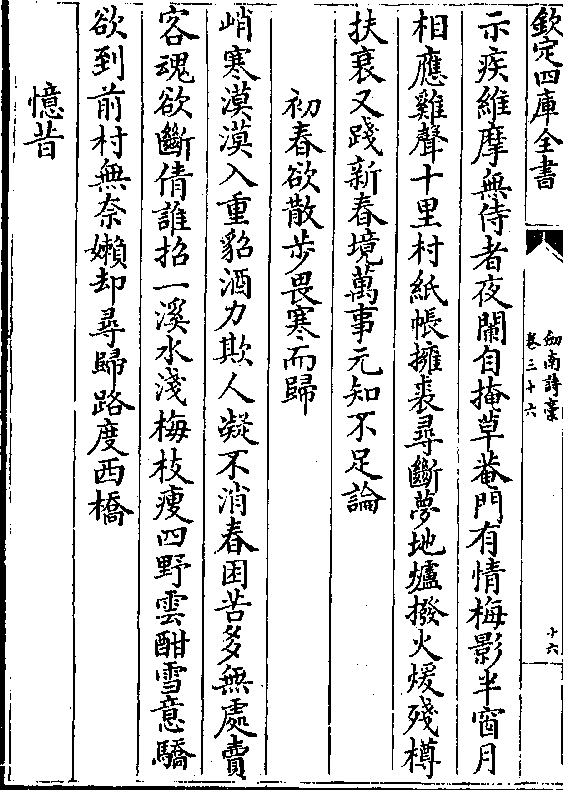 欽定四庫全書
劔南詩稾
卷三十六
十六
示疾維摩無侍者夜闌自掩草菴門有情梅影半窗月
相應雞聲十里村紙帳擁裘尋斷夢地爐撥火煖殘樽
扶衰又踐新春境萬事元知不足論
初春欲散步畏寒而歸
峭寒漠漠入重貂酒力欺人凝不消春困苦多無處賣
客魂欲斷倩誰招一溪水淺梅枝瘦四野雲酣雪意驕
欲到前村無奈嬾却尋歸路度西橋
憶昔